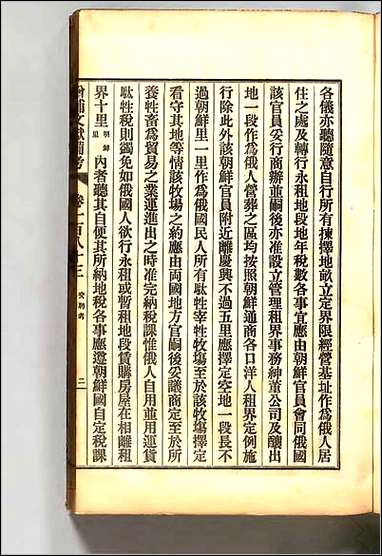 各儀亦聽隨意自行所有揀擇地畝立定界限經營基址作爲俄人居
住之處及轉行永租地段地年稅數各事宜應由朝鮮官員會同俄國
該官員妥行商辦並嗣後亦准設立管理租界事務紳董公司及釀出
地一段作爲俄人營葬之區均按照朝鮮通商各口洋人租界定例施
行除此外該朝鮮官員附近離慶興不過五里應擇定空地一段長不
過朝鮮里一里作爲俄國民人所有馱牲宰牲牧塲至於該牧塲擇定
看守其地等情該牧塲之約應由両國地方官嗣後妥議商定至於所
養牲畜爲貿易之業運進出之時准完納稅課惟俄人自用並用運貨
馱牲稅則蠲免如俄國人欲行永租或暫租地段賃購房屋在相離租
界十里朝鮮里內者聽其自便其所納地稅各事應遵朝鮮國自定稅課
增補文獻備考 卷一百八十三 交聘考 二